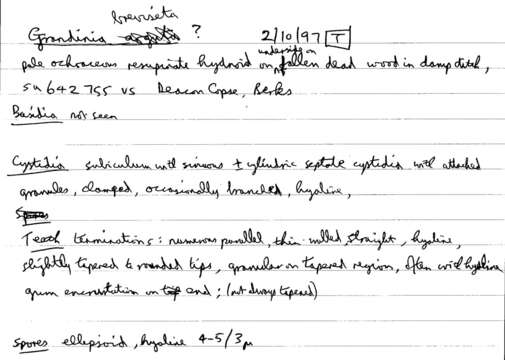 breviseta
Grandinia ?
2/10/97 T
underside on
pale ochraceous resupinate hydnoid on fallen dead wood in damp ditch,
SU 642 755 VS Deacon Copse, Berks
Basidia not seen
Cystidia subiculum with sinuous ± cylindric septate cystidia with attached
granules, clamped, occasionally branched, hyaline,
Spores
Teeth terminations: numerous parallel, thin walled, straight, hyaline,
slightly tapered to rounded tips, granular on tapered region, often with hyaline
grum encrustation on end; (not always tapered)
spores ellipsoid, hyaline 4-5/3µ